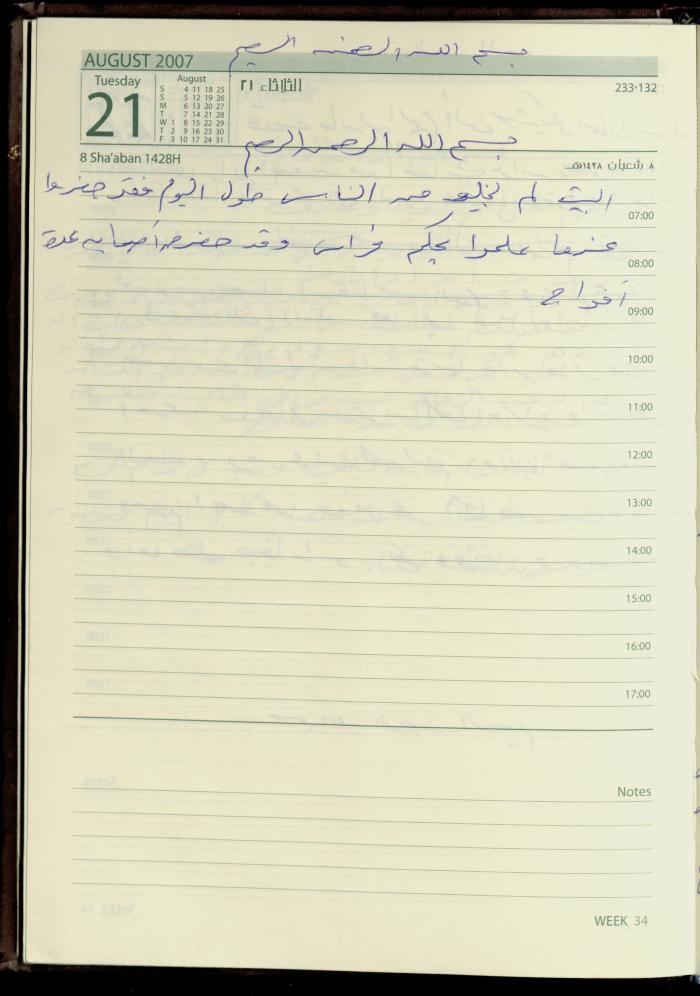 بسم الله الرحمن الرحيم
AUGUST 2007
Tuesday
21
August
S 4 11 18 25
S 5 12 19 26
M 6 13 20 27
T 7 14 21 28
W 1 8 15 22 29
T 2 9 16 23 30
F 3 10 17 24 31
الثلاثاء ٢١
233-132
بسم الله الرحمن الرحيم
8 Sha'aban 1428H
٨ شعبان ١٤٢٨هـ
البيت لم يخلو من الناس طول اليوم فقد حضروا
07:00
عندما علموا بحكم فراس وقد حضر أصحابه عدة
08:00
أفواج
09:00
10:00
11:00
12:00
13:00
14:00
15:00
16:00
17:00
Notes
WEEK 34